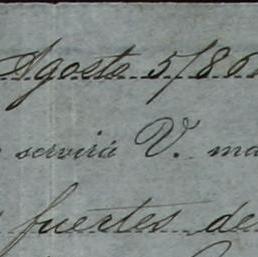 Agosto 5/86
servirá V.
fuertes de